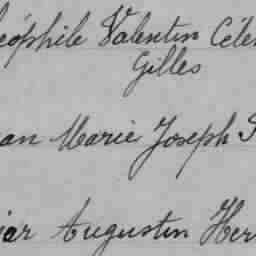 éophile Valentin Céle
Gilles
an Marie Joseph
iar Augustin Her